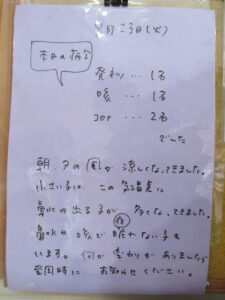 月23日(火)
本日の病欠
発熱 … 1名
咳 … 1名
コロナ … 2名
でした
朝、夕の風が涼しくなってきました。
小さい子は、この気温差に
鼻水の出る子が多くなってきました。
夜
鼻水や咳で眠れない子も
います。何か変わりがありましたら
登園時に お知らせください。